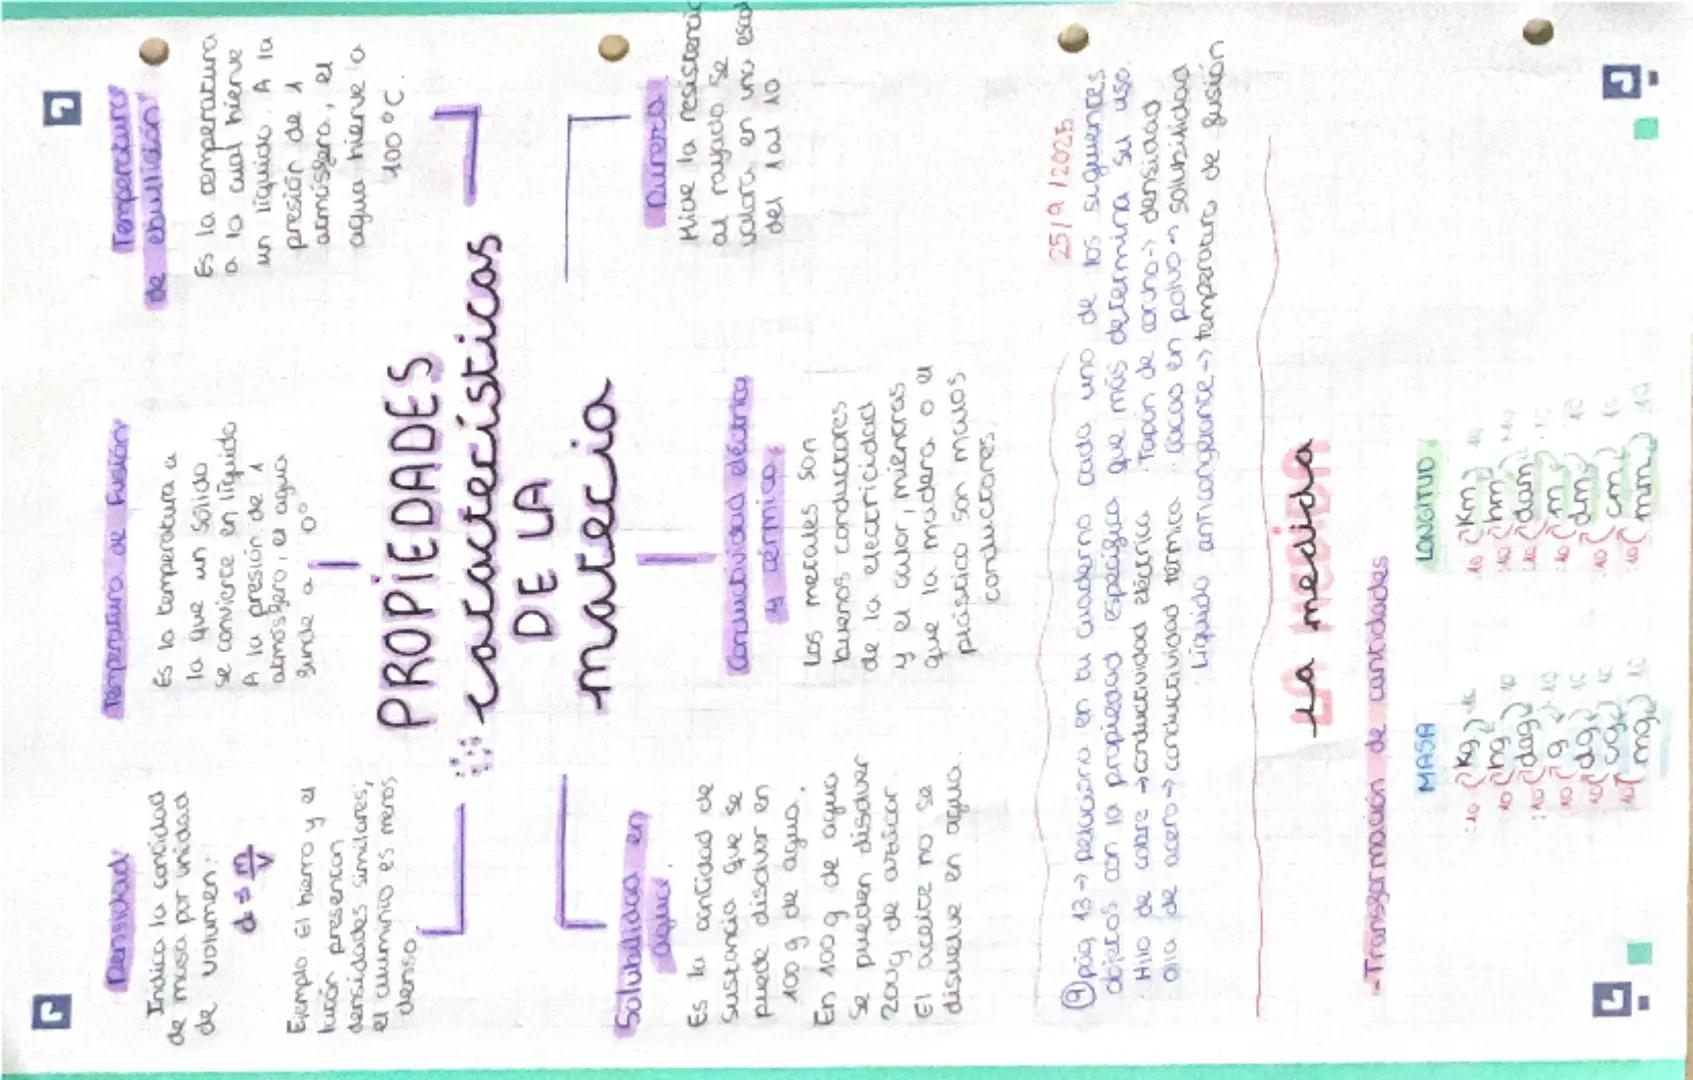 Densidad
Indica la cantidad
de masa por unidad
de volumen.
d = m/v
Ejemplo El hierro y el
latón presentan
densidades similares;
el aluminio es menos
denso
Temperatura de fusión
Es la temperatura a
la que un sólido
se convierte en líquido
A la presión de 1
atmósfera, el agua
funde a 0°
Temperatura
de ebullición
Es la temperatura
a la cual hierve
un líquido. A la
presión de 1
atmósfera, el
agua hierve a
100 °C.
PROPIEDADES
características
DE LA
materia
Solubilidad en
agua
Es la cantidad de
sustancia que se
puede disolver en
100 g de agua.
En 100 g de agua
se pueden disolver
204g de azúcar.
El aceite no se
disuelve en agua.
Conductividad eléctrica
y térmica
Los metales son
buenos conductores
de la electricidad
y el calor, mientras
que la madera o el
plástico son malos
conductores
Dureza
Mide la resistencia
al rayado. Se
valora en una escal
del 1 al 10
25/9/2025
9 pág 13 → Relaciona en tu cuaderno cada uno de los siguientes
objetos con la propiedad específica que más determina su uso.
Hilo de cobre → conductividad eléctrica Tapón de corcho → densidad
olla de acero → conductividad térmica Cacao en polvo → solubilidad
Líquido anticongelante → temperatura de fusión
LA MEDIDA
La medida
- Transformación de cantidades
MASA LONGITUD
:10 Kg 10 :10 Km 10
:10 hg 10 :10 hm 10
:10 dag 10 :10 dam 10
:10 g 10 :10 m 10
:10 dg 10 dm 10
:10 cg 10 :10 cm 10
:10 mg 10 :10 mm 10